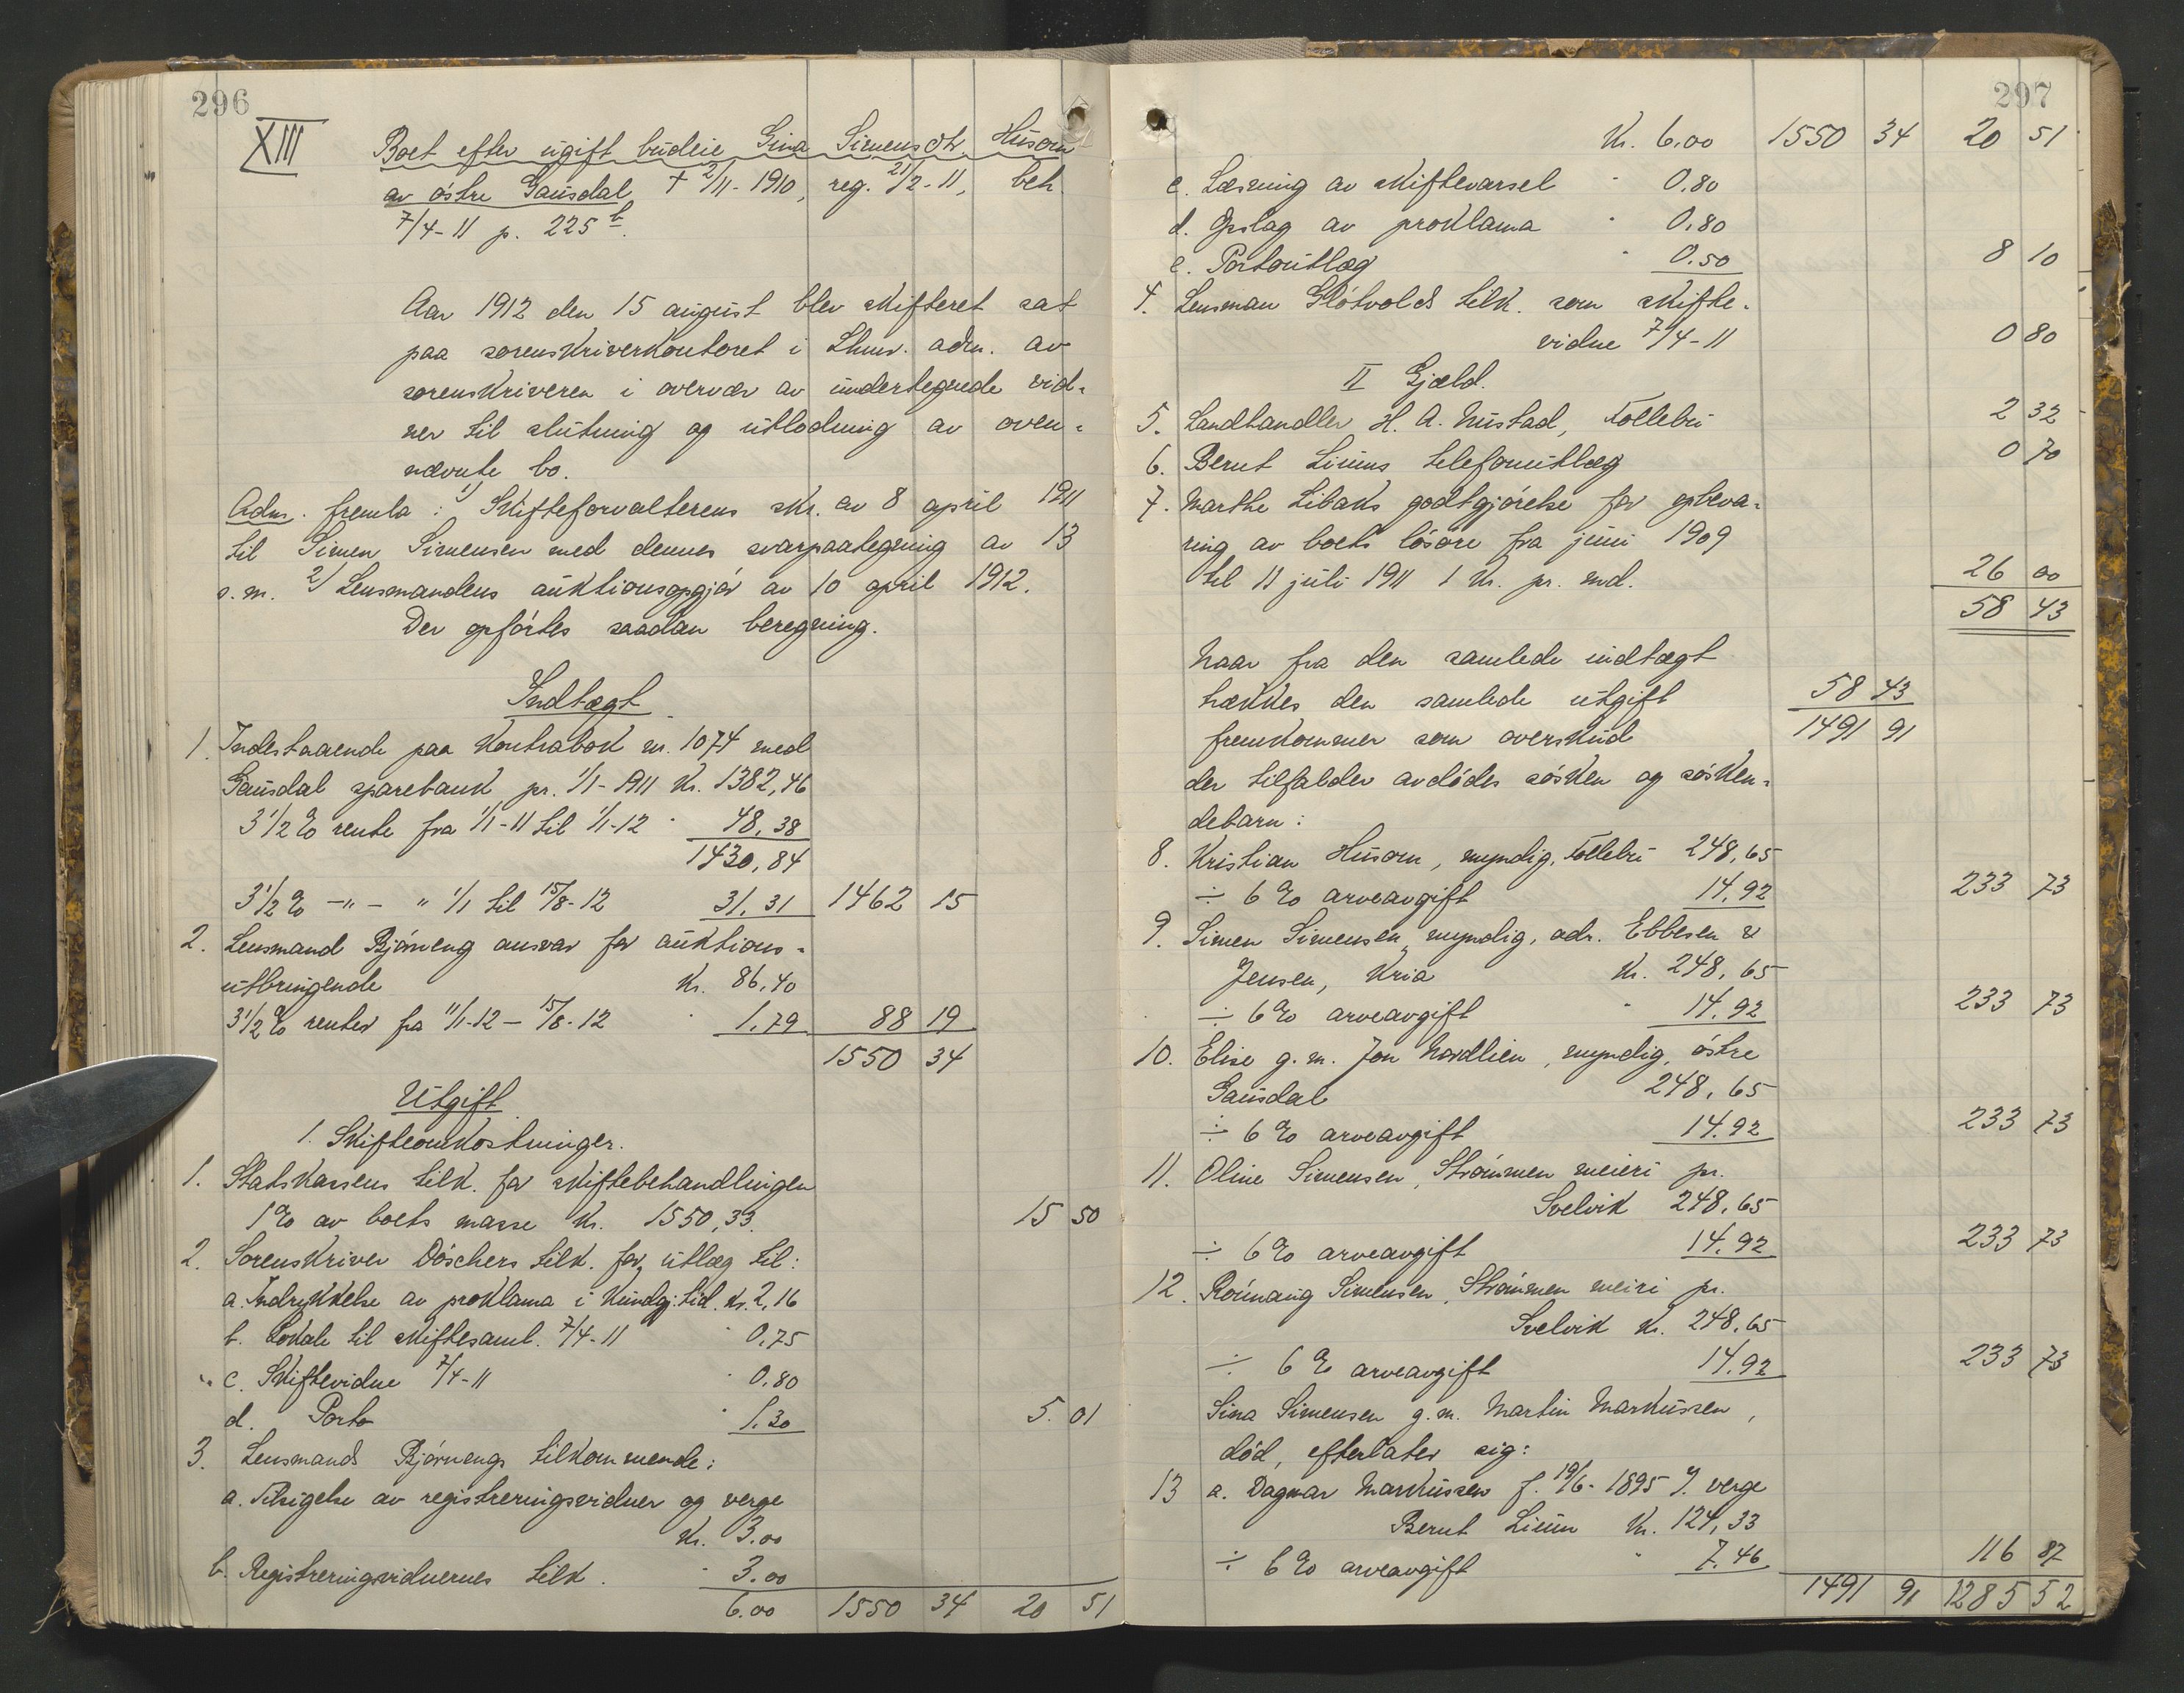 296
XIII
Boet efter ugift budeie Gina Simensdtr. Husom
av östre Gausdal † 2/11-1910, reg. 21/2-11, beh
7/4-11 p. 225 b.
Aar 1912 den 15 august blev skifteret sat
paa sorenskriverkontoret i Lhmr. adm. av
sorenskriveren i overvær av undertegnede vid-
ner til slutning og utlodning av oven-
nævnte bo.
Adm. fremla: 1) Skifteforvalterens skr. av 8 april 1911
til Simen Simensen med dennes svarpaategning av 13
s.m. 2) Lensmandens auktionsopgjör av 10 april 1912.
Der opförtes saadan beregning.
Indtægt
1. Indestaaende paa Kontrabok nr. 1074 med
Gausdal sparebank pr. 1/1-1911 Kr. 1382,46
3 1/2 % rente fra 1/1-11 til 1/1-12 " 48,38
1430,84
3 1/2 % -"- " 1/1 til 15/8-12 31,31 1462 15
2. Lensmand Björneng ansvar for auktions-
utbringende Kr. 86,40
3 1/2 % renter fra 11/1-12 - 15/8-12 " 1,79 88 19
1550 34
Utgift
1. Skifteomkostninger.
1. Statskassens tilk. for skiftebehandlingen
1 % av boets masse Kr. 1550,33. 15 50
2. Sorenskriver Döschers tilk. for utlæg til:
a. Indrykkelse av proklama i Kundgj. tid. Kr. 2,16
b. Lokale til skiftesaml. 7/4-11 " 0,75
c. Skiftevidne 7/4-11 " 0,80
d. Porto " 1.30 5.01
3. Lensmand Björnengs tilkommende:
a. Tilsigelse av registreringsvidner og verge
Kr. 3.00
b. Registreringsvidnernes tilk. " 3.00
6.00 1550 34 20 51
297
Kr. 6.00 1550 34 20 51
c. Læsning av skiftevarsel " 0.80
d. Opslag av proklama " 0.80
e. Portoutlæg " 0.50 8 10
4. Lensman Flötvolds tilk. som skifte-
vidne 7/4-11 0 80
II Gjæld.
5. Landhandler H. A. Nustad, Follebu 2 32
6. Bernt Liums telefonutlæg 0 70
7. Marthe Libaks godtgjörelse for opbeva-
ring av boets lösöre fra juni 1909
til 11 juli 1911 1 Kr. pr. md. 26 00
58 43
Naar fra den samlede indtægt
trækkes den samlede utgift 58 43
fremkommer som overskud 1491 91
der tilfalder avdödes sösken og sösken-
debarn:
8. Kristian Husom, myndig, Follebu 248,65
÷ 6 % arveavgift 14.92 233 73
9. Simen Simensen, myndig, adr. Ebbesen &
Jensen, Kria Kr. 248,65
÷ 6 % arveavgift " 14.92 233 73
10. Elise g.m. Jon Nordlien, myndig, östre
Gausdal 248,65
÷ 6 % arveavgift 14.92 233 73
11. Oline Simensen, Strömmen meieri pr.
Svelvik 248,65
÷ 6 % arveavgift 14.92 233 73
12. Rönnaug Simensen, Strömmen meiri pr.
Svelvik Kr. 248,65
÷ 6 % arveavgift 14.92 233 73
Sina Simensen g.m. Martin Markussen,
död, efterlater sig:
13 a. Dagmar Markussen f. 19/6-1895 verge
Bernt Lium Kr. 124,33
÷ 6 % arveavgift " 7.46 116 87
1491 91 1285 52